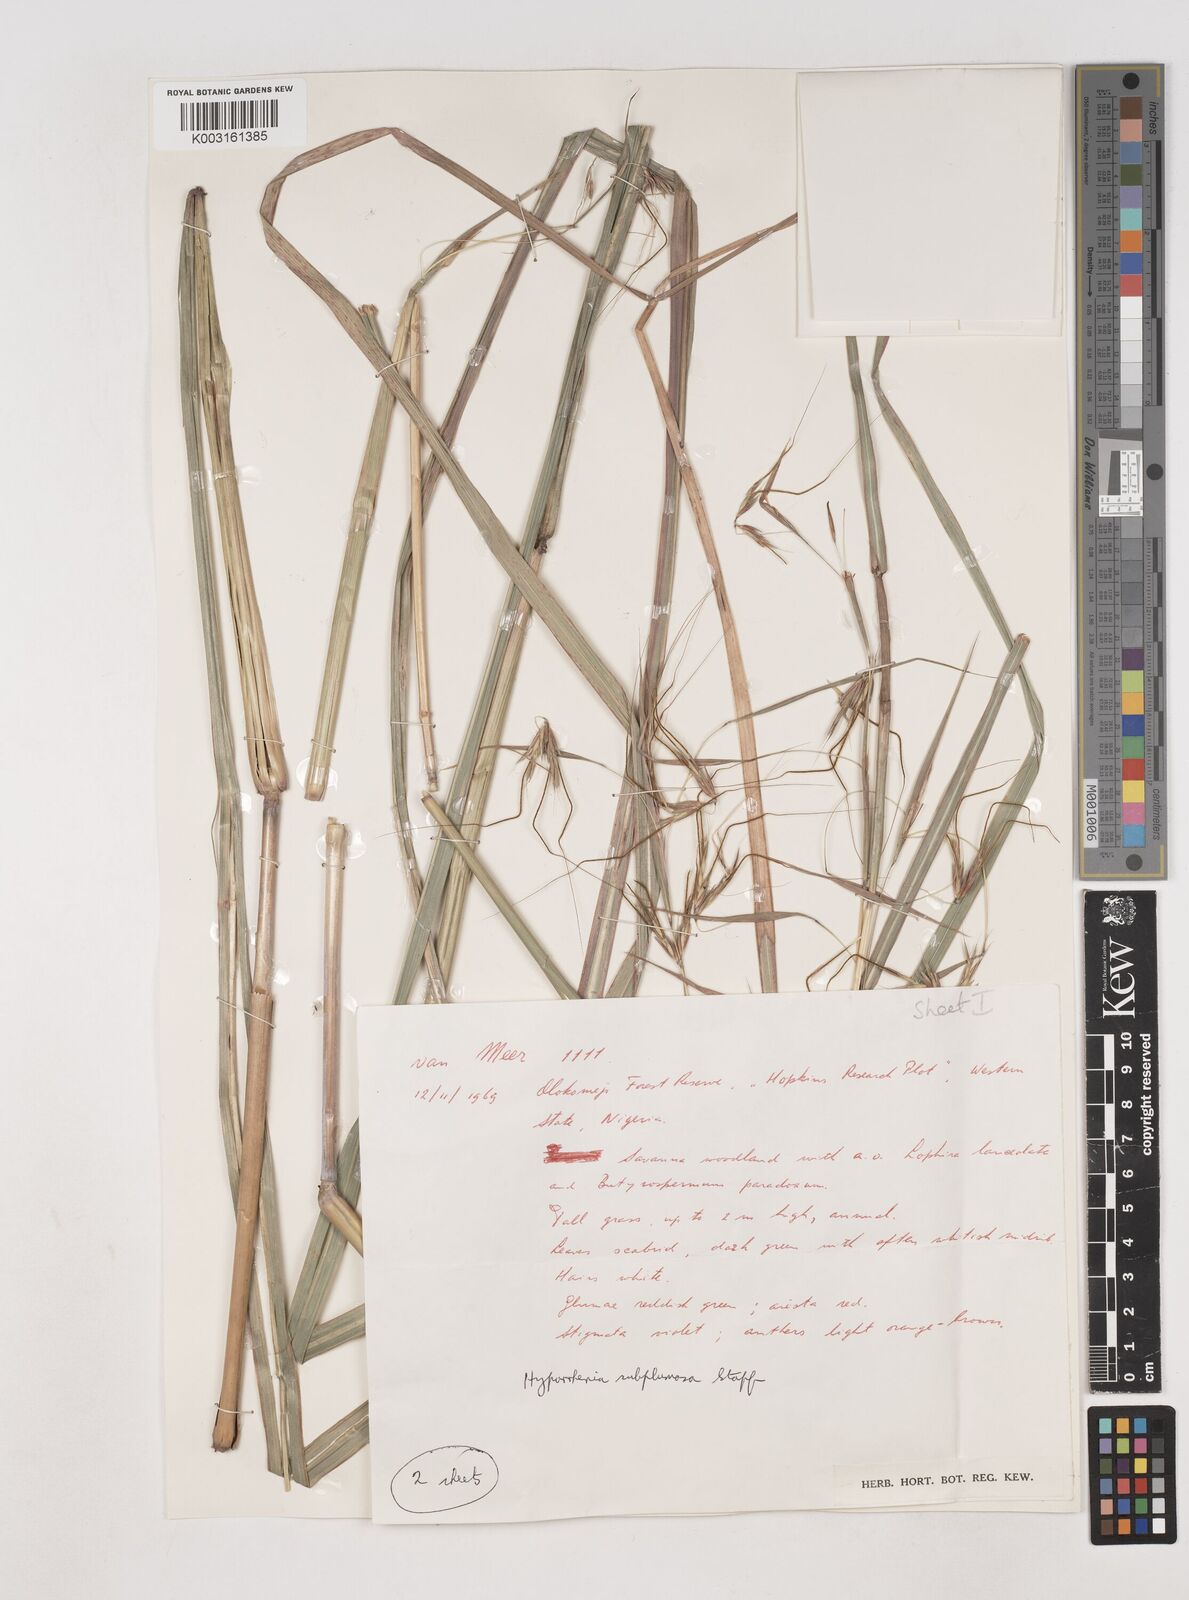 ROYAL BOTANIC GARDENS KEW
K003161385
Sheet I
van Meer 1111.
12/11/1969 Olokomeji Forest Reserve, „Hopkins Research Plot", Western
State, Nigeria.
Savanna woodland with a.o. Lophira lanceolata
and Butyrospermum paradoxum.
Tall grass, up to 2 m high, annual.
Leaves scabrid, dark green with often whitish midrib.
Hairs white.
Glumae reddish green; arista red.
Stigmata violet; anthers light orange-brown.
Hyparrhenia subplumosa Stapf
2 sheets
HERB. HORT. BOT. REG. KEW.
inches
centimetres
Density
Don Williams
M001006
Kew
Royal Botanic Gardens
copyright reserved
0 1 2 3 4 5 6 7 8 9 10
cm